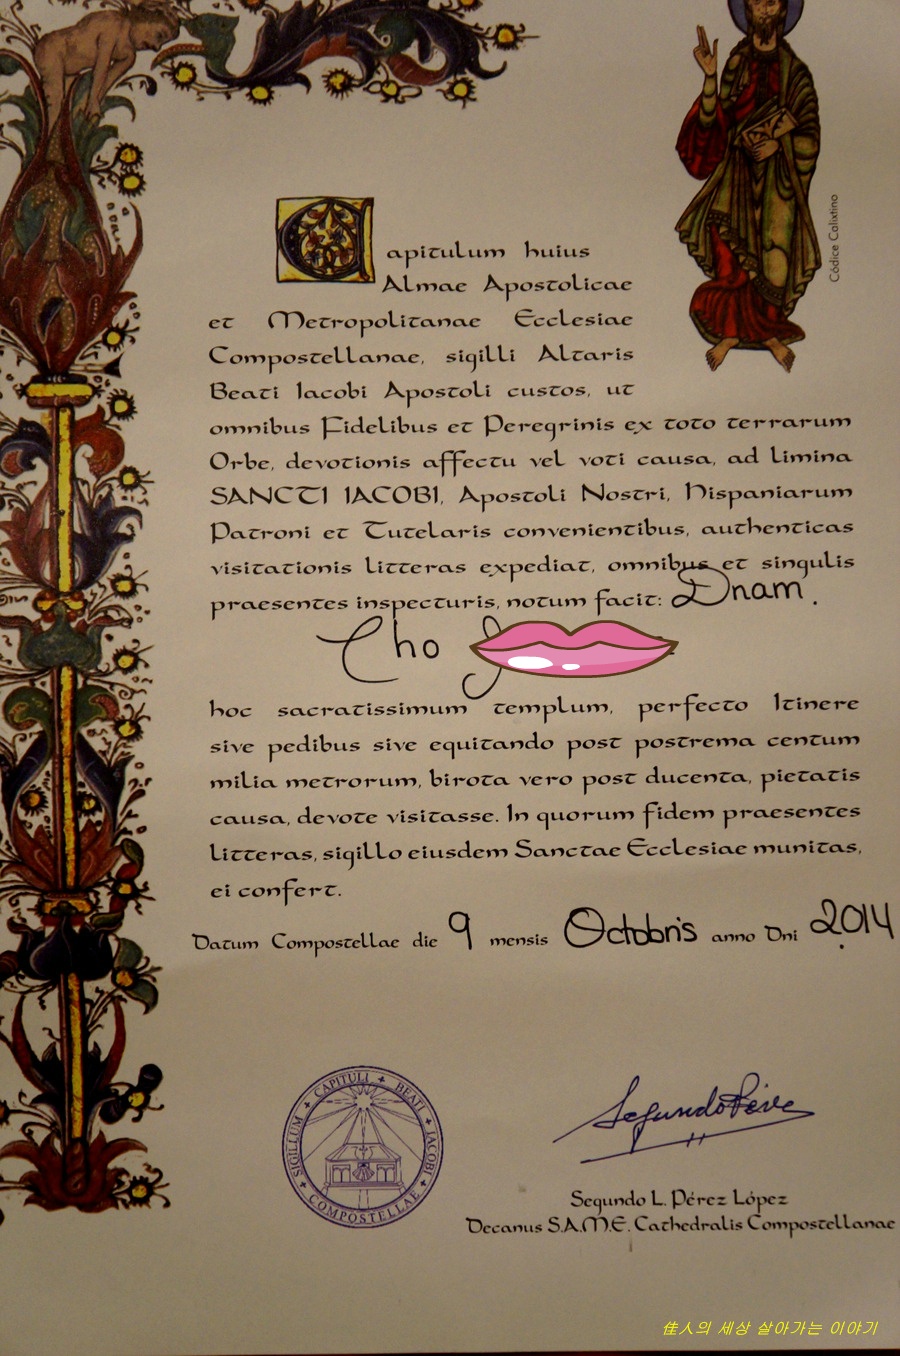 Códice Calixtino
Capitulum huius
Almae Apostolicae
et Metropolitanae Ecclesiae
Compostellanae, sigilli Altaris
Beati Iacobi Apostoli custos, ut
omnibus Fidelibus et Peregrinis ex toto terrarum
Orbe, devotionis affectu vel voti causa, ad limina
SANCTI IACOBI, Apostoli Nostri, Hispaniarum
Patroni et Tutelaris convenientibus, authenticas
visitationis litteras expediat, omnibus et singulis
praesentes inspecturis, notum facit: Dnam.
Cho
hoc sacratissimum templum, perfecto Itinere
sive pedibus sive equitando post postrema centum
milia metrorum, birota vero post ducenta, pietatis
causa, devote visitasse. In quorum fidem praesentes
litteras, sigillo eiusdem Sanctae Ecclesiae munitas,
ei confert.
Datum Compostellae die 9 mensis Octobris anno Dni 2014
SIGILLUM CAPITULI BEATI IACOBI COMPOSTELLAE
Segundo Pérez
Segundo L. Pérez López
Decanus S.A.M.E. Cathedralis Compostellanae
佳人의 세상 살아가는 이야기